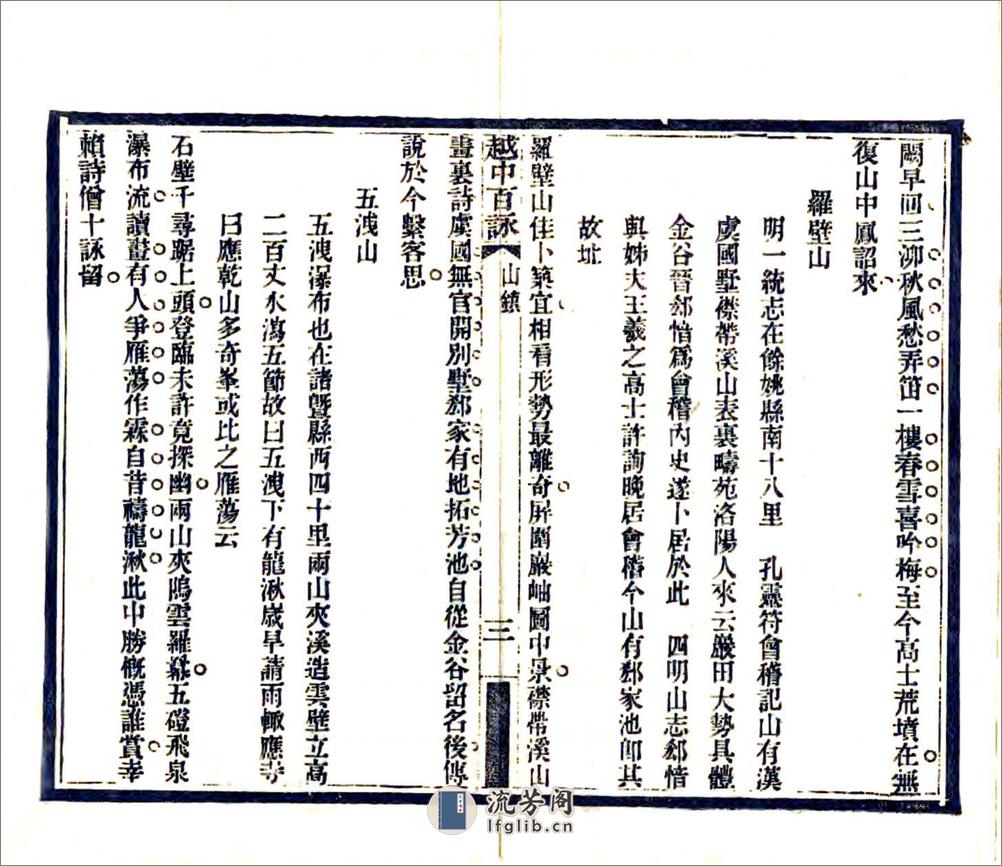 闕早回三泖秋風愁弄笛一樓春雪喜吟梅至今高士荒墳在無
復山中鳳詔來
羅壁山
明一統志在餘姚縣南十八里　孔靈符會稽記山有漢
虞國墅襟帶溪山表裏疇苑洛陽人來云巖田大勢具體
金谷晉郄愔爲會稽內史遂卜居於此　四明山志郄愔
與姊夫王羲之高士許詢晚居會稽今山有郄家池卽其
故址
羅壁山佳卜築宜相看形勢最離奇屏開巖岫圖中景襟帶溪山
越中百詠　山鎮　三
畫裏詩虞國無官開別墅郄家有地拓芳池自從金谷留名後傳
說於今繫客思
五洩山
五洩瀑布也在諸暨縣西四十里兩山夾溪造雲壁立高
二百丈水瀉五節故曰五洩下有龍湫歲旱請雨輙應寺
曰應乾山多奇峯或比之雁蕩云
石壁千尋踞上頭登臨未許竟探幽兩山夾塢雲羅幕五磴飛泉
瀑布流讀畫有人爭雁蕩作霖自昔禱龍湫此中勝慨憑誰賞幸
賴詩僧十詠留
流芳阁
lfglib.cn